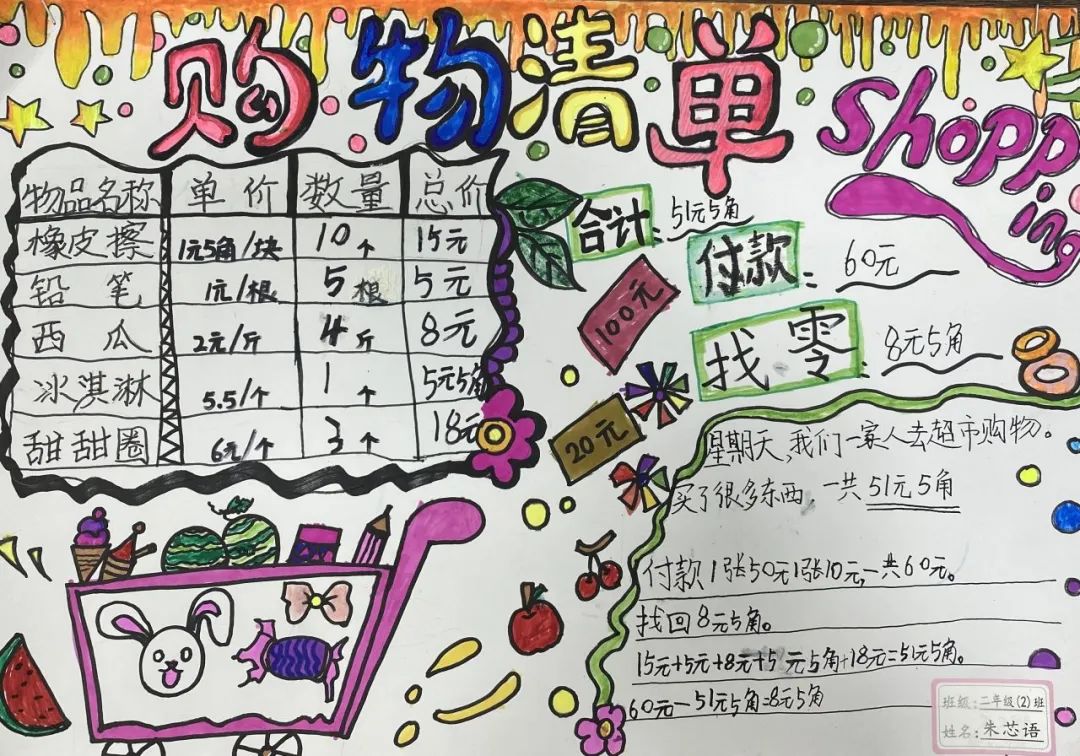 购物清单
Shopping
物品名称 单价 数量 总价
橡皮擦 1元5角/块 10个 15元
铅笔 1元/根 5根 5元
西瓜 2元/斤 4斤 8元
冰淇淋 5.5/个 1个 5元5角
甜甜圈 6元/个 3个 18元
合计: 51元5角
付款: 60元
找零: 8元5角
100元
20元
星期天,我们一家人去超市购物。
买了很多东西,一共51元5角
付款1张50元1张10元,一共60元。
找回8元5角。
15元+5元+8元+5元5角+18元=51元5角。
60元-51元5角=8元5角
班级:二年级(2)班
姓名:朱芯语